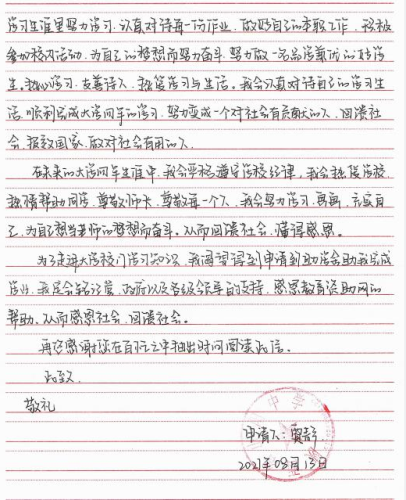 学习生涯里努力学习.认真对待每一份作业,做好自己的本职工作,积极
参加校内活动,为自己的梦想而努力奋斗.努力做一名品学兼优的好学
生.热心学习,友善待人,热爱学习与生活。我会认真对待自己的学习生
活.顺利完成大学四年的学习.努力变成一个对社会有贡献的人.回溃社
会.报效国家.做对社会有用的人.
在未来的大学四年生涯中.我会严格遵守学校纪律,我会热爱学校
热情帮助同学.尊敬师长.尊敬每一个人,我会努力学习,勇敢,充实自
己.为自己想当老师的梦想而奋斗。从而回溃社会.懂得感恩。
为了走进大学校门学习知识,我渴望得到申请到助学金助我完成
学业.我是会转达爱,政府以及各级领导的支持,感恩教育资助网的
帮助.从而感恩社会.回溃社会。
再次感谢您在百忙之中抽出时间阅读此信。
此致
敬礼
中学
申请人:
2021年08月13日